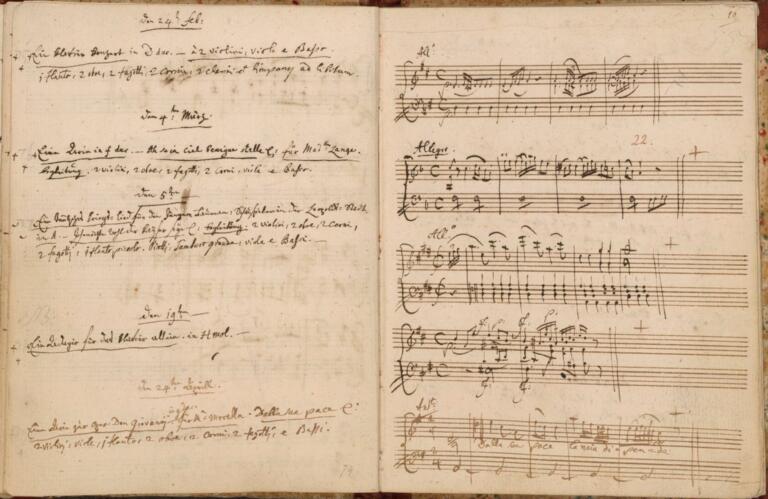 den 24:ten feb:
Ein klavier konzert in D dur. — à 2 violini, viole e Basso.
1 flauto, 2 oboe, 2 fagotti, 2 Corni, 2 clarini et timpany ad libitum.
den 4:ten März.
Eine Aria in f dur. — Ah se in ciel benigne stelle &. für Mad:me Lange.
begleitung. 2 violini, 2 oboe, 2 fagotti, 2 corni, viole e Basso.
den 5:ten
Ein für den Jungen in der Leopold-Stadt
in A. — Ich möchte wohl der kaiser seyn &. begleitung. 2 violini, 2 oboe, 2 Corni,
2 fagotti, 1 flauto piccolo. Piatti, Tamburo grande, viole e Bassi. —
den 19:ten
Ein Adagio für das klavier allein. in H mol. —
den 24:ten Aprill.
Eine Aria zur opera Don Giovanni. für M:r Morella. Dalla sua pace &:
2 violini, viole, 1 flauto, 2 oboe, 2 Corni, 2 fagotti, e Bassi.
10
All:o
22.
Allegro.
All:o
And:te
Dalla sua pace la mia dipende